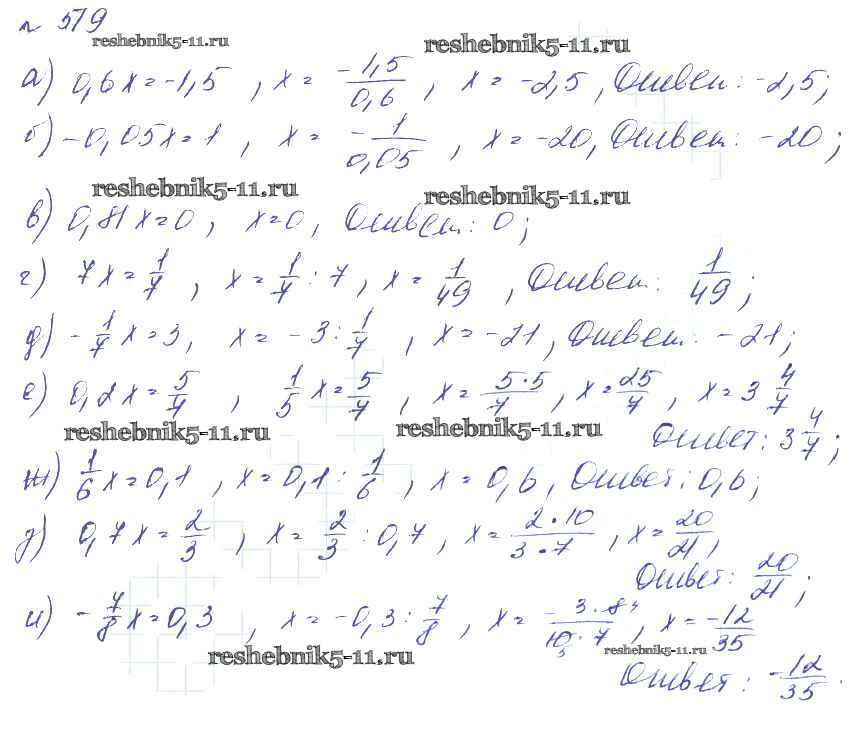 № 579
reshebnik5-11.ru reshebnik5-11.ru
а) 0,6x=-1,5, x= -1,5/0,6, x= -2,5, Ответ: -2,5;
б) -0,05x=1, x= -1/0,05, x= -20, Ответ: -20;
reshebnik5-11.ru reshebnik5-11.ru
в) 0,81x=0, x=0, Ответ: 0;
г) 7x=1/7, x=1/7:7, x=1/49, Ответ: 1/49;
д) -1/7x=3, x= -3:1/7, x= -21, Ответ: -21;
е) 0,2x=5/7, 1/5x=5/7, x= 5·5/7, x=25/7, x=3 4/7
reshebnik5-11.ru reshebnik5-11.ru
Ответ: 3 4/7;
ж) 1/6x=0,1, x=0,1:1/6, x=0,6, Ответ: 0,6;
з) 0,7x=2/3, x=2/3:0,7, x= 2·10/3·7, x=20/21,
Ответ: 20/21;
и) -7/8x=0,3, x= -0,3:7/8, x= -3·8 4/10 5·7, x= -12/35
reshebnik5-11.ru reshebnik5-11.ru
Ответ: -12/35.